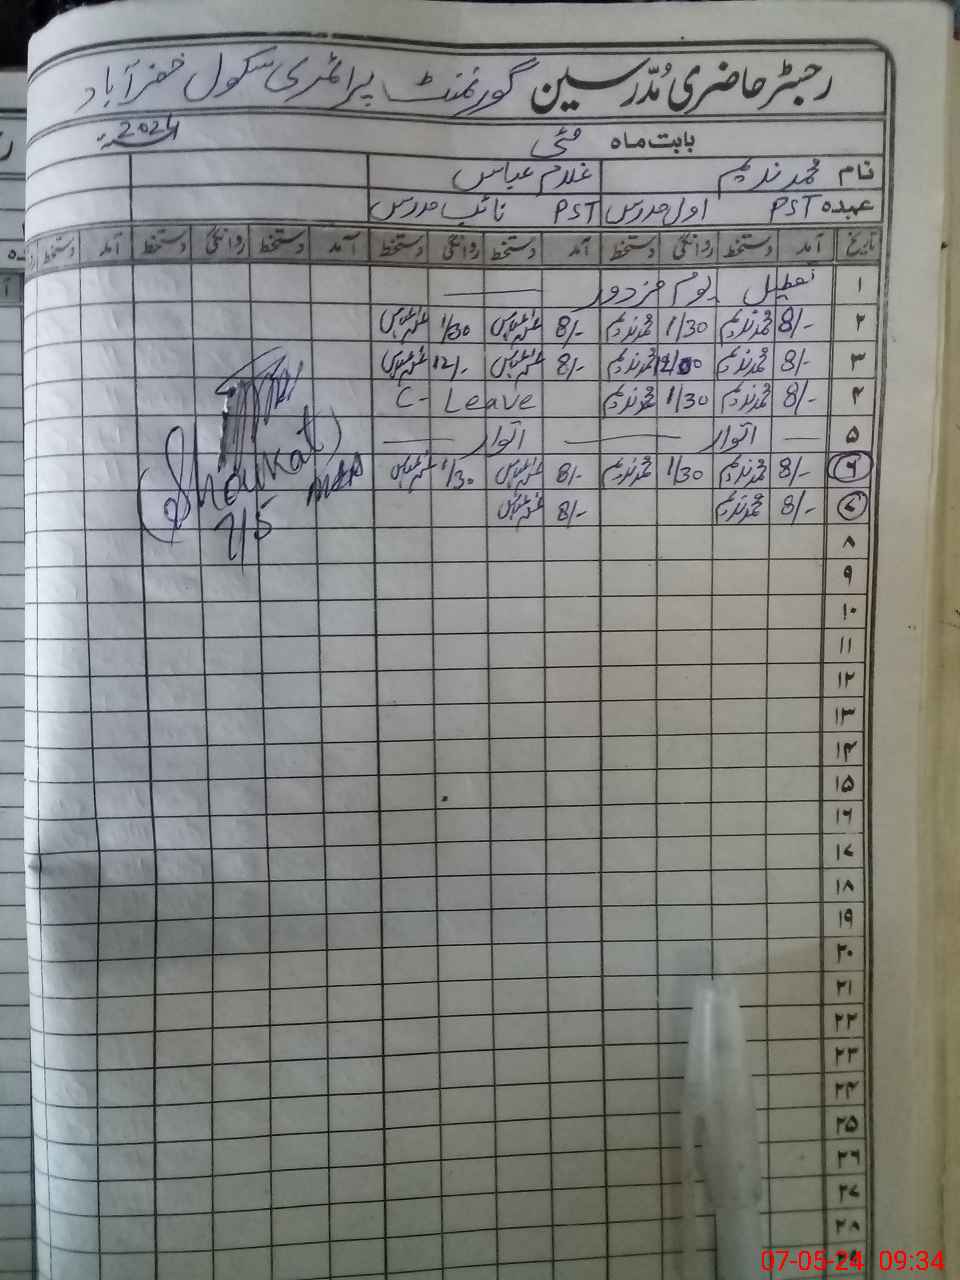 رجسٹر حاضری مُدّرسین گورنمنٹ پرائمری سکول خضرآباد
بابت ماہ مئی 2024
نام محمد ندیم غلام عباس
عہدہ PST اول مدرس PST نائب مدرس
تاریخ آمد دستخط روانگی دستخط آمد دستخط روانگی دستخط آمد دستخط روانگی دستخط آمد دستخط
۱ تعطیل یوم مزدور
۲ 8/- محمد ندیم 1/30 محمد ندیم 8/- غلام عباس 1/30 غلام عباس
۳ 8/- محمد ندیم 12/00 محمد ندیم 8/- غلام عباس 12/- غلام عباس
۴ 8/- محمد ندیم 1/30 محمد ندیم C- Leave
۵ اتوار اتوار
۶ 8/- محمد ندیم 1/30 محمد ندیم 8/- غلام عباس 1/30 غلام عباس
۷ 8/- محمد ندیم 8/- غلام عباس
Shoukat
7/5
۸
۹
۱۰
۱۱
۱۲
۱۳
۱۴
۱۵
۱۶
۱۷
۱۸
۱۹
۲۰
۲۱
۲۲
۲۳
۲۴
۲۵
۲۶
۲۷
۲۸
07-05-24 09:34